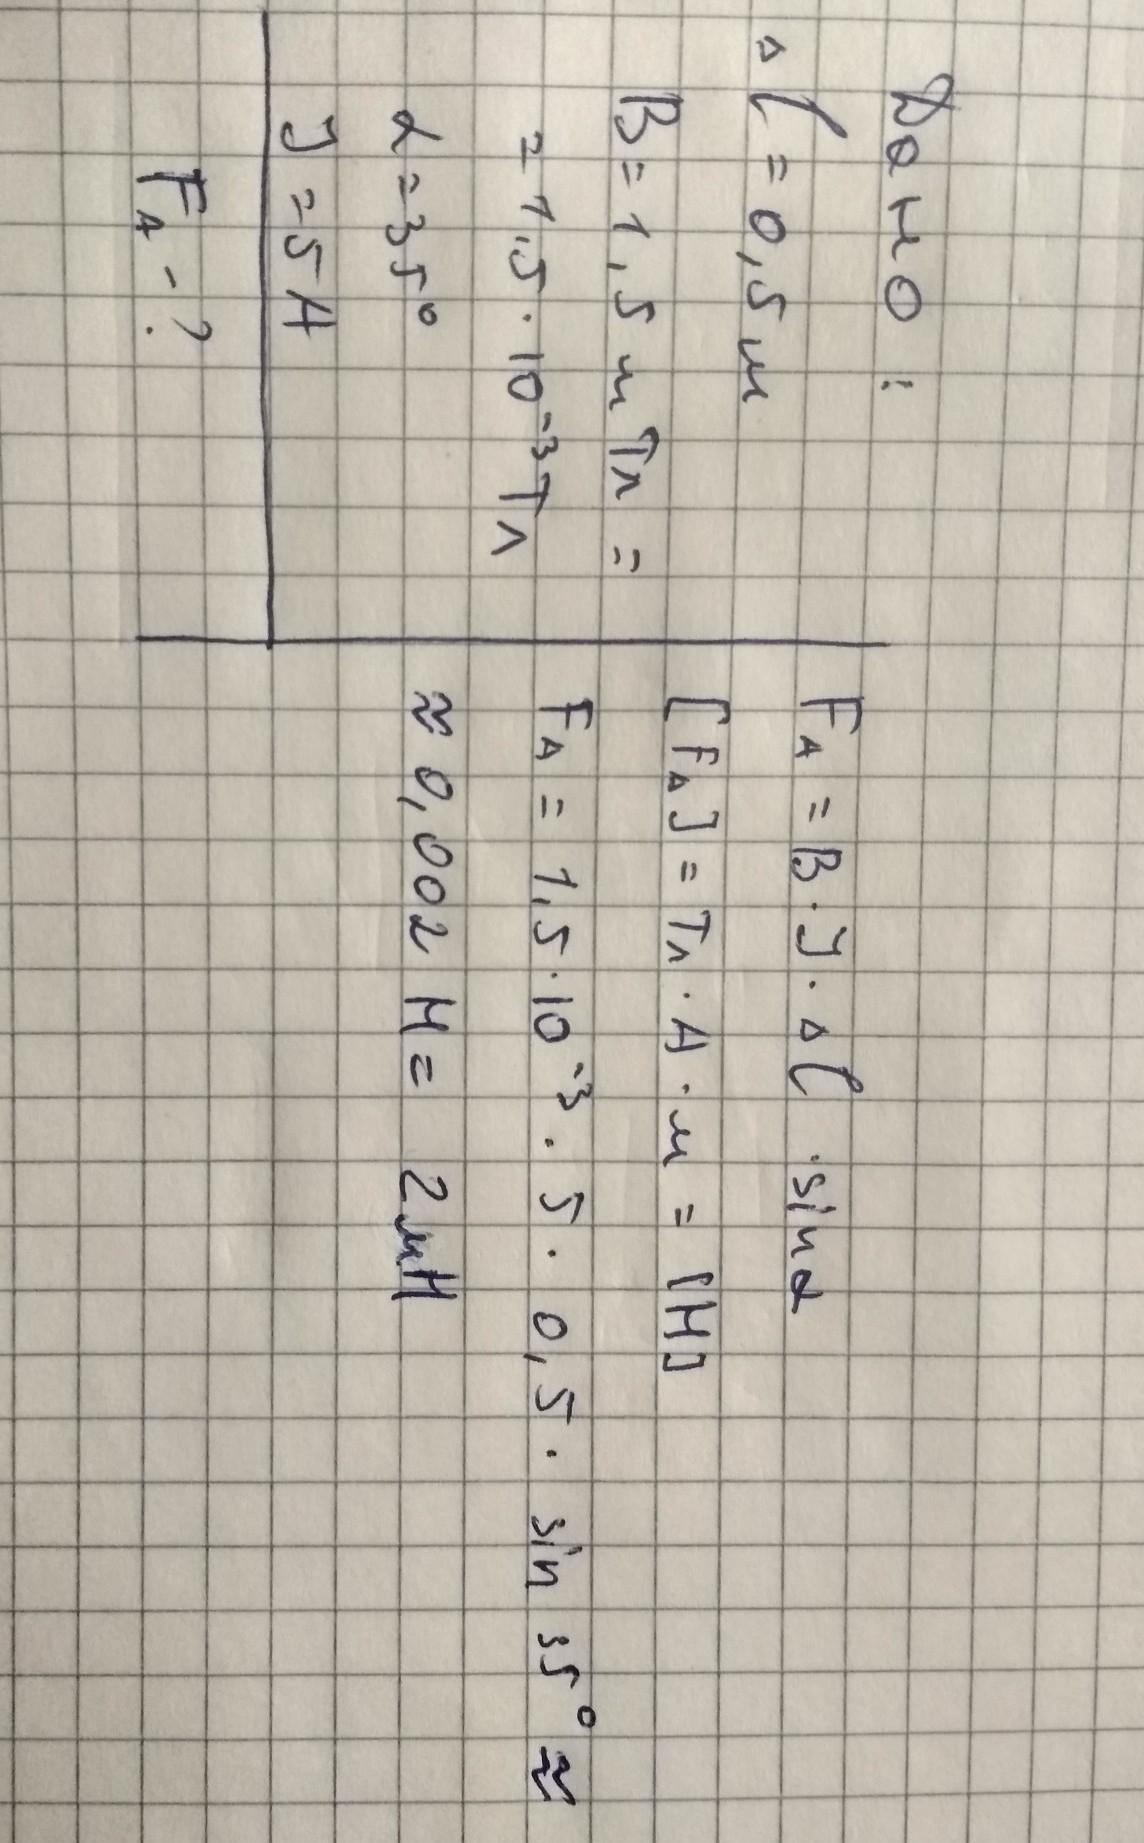 Дано:
Δl = 0,5 м
B = 1,5 мТл =
= 1,5 · 10⁻³ Тл
α = 35°
J = 5 А
Fₐ - ?
Fₐ = B · J · Δl · sinα
[Fₐ] = Тл · А · м = [Н]
Fₐ = 1,5 · 10⁻³ · 5 · 0,5 · sin 35° ≈
≈ 0,002 Н = 2 мН